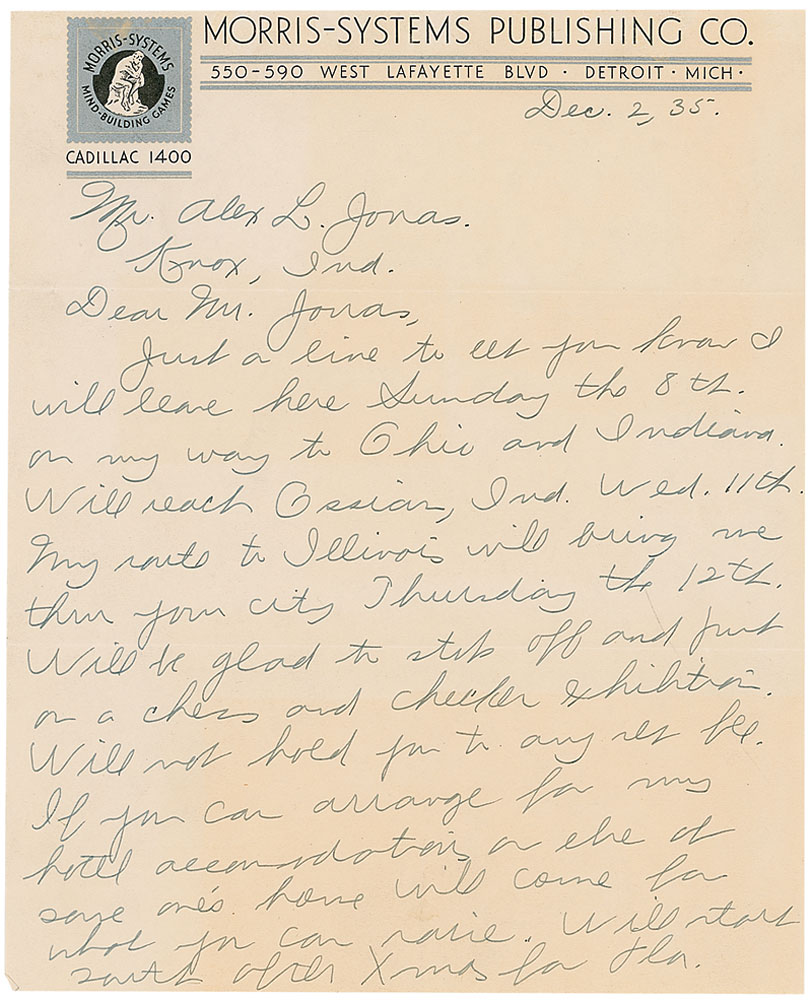 MORRIS-SYSTEMS PUBLISHING CO.
550-590 WEST LAFAYETTE BLVD · DETROIT · MICH ·
MORRIS-SYSTEMS
MIND-BUILDING GAMES
CADILLAC 1400
Dec. 2, 35.
Mr. Alex L. Jonas.
Knox, Ind.
Dear Mr. Jonas,
Just a line to let you know I
will leave here Sunday the 8th.
on my way to Ohio and Indiana.
Will reach Ossian, Ind. Wed. 11th.
My route to Illinois will bring me
thru your city Thursday the 12th.
Will be glad to stop off and put
on a chess and checker exhibition.
Will not hold you to any set fee.
If you can arrange for my
hotel accomodations or else at
some one's home will come for
what you can raise. Will start
south after Xmas for Fla.